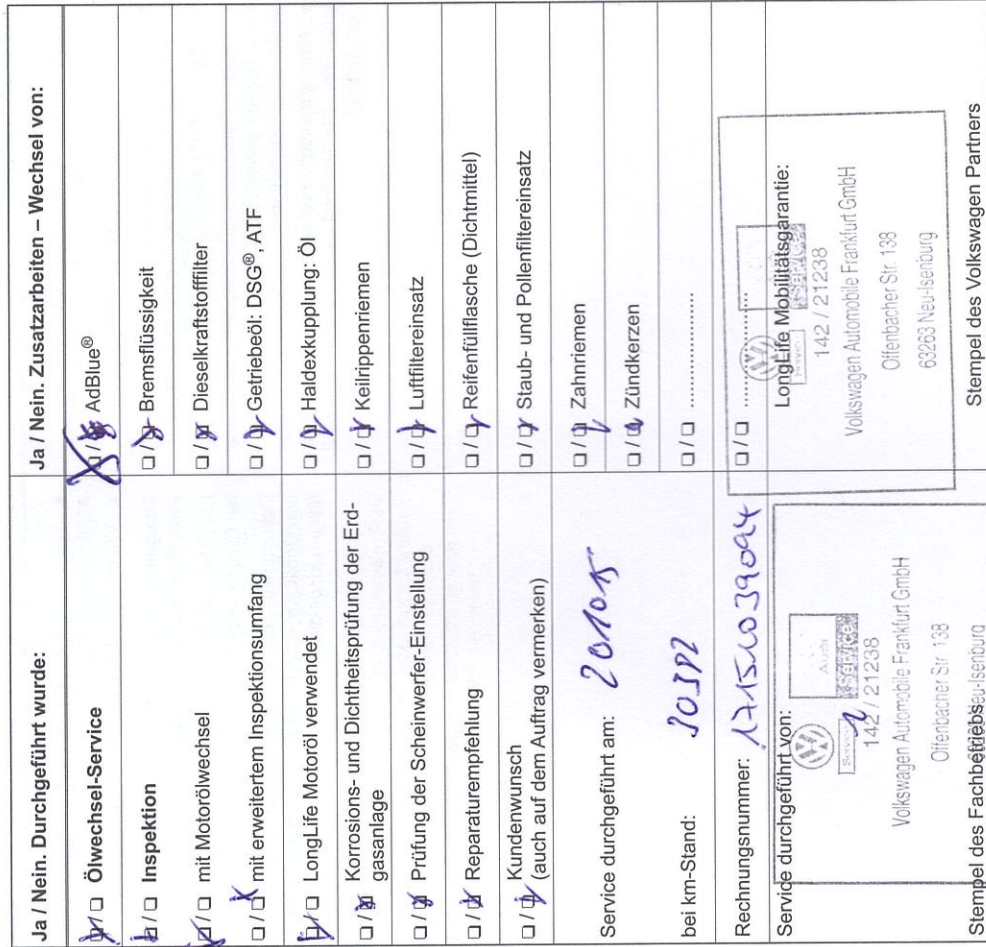 Ja / Nein. Durchgeführt wurde:
☒ / ☐ Ölwechsel-Service
☒ / ☐ Inspektion
☒ / ☐ mit Motorölwechsel
☐ / ☒ mit erweitertem Inspektionsumfang
☒ / ☐ LongLife Motoröl verwendet
☐ / ☒ Korrosions- und Dichtheitsprüfung der Erd-
gasanlage
☐ / ☒ Prüfung der Scheinwerfer-Einstellung
☐ / ☒ Reparaturempfehlung
☐ / ☒ Kundenwunsch
(auch auf dem Auftrag vermerken)
Service durchgeführt am: 201015
bei km-Stand:
Rechnungsnummer:
Service durchgeführt von:
Service
Audi
Service
142 / 21238
Volkswagen Automobile Frankfurt GmbH
Offenbacher Str. 138
63263 Neu-Isenburg
Stempel des Fachbetriebs
Ja / Nein. Zusatzarbeiten – Wechsel von:
AdBlue®
☐ / ☒ Bremsflüssigkeit
☐ / ☒ Dieselkraftstofffilter
☐ / ☒ Getriebeöl: DSG®, ATF
☐ / ☒ Haldexkupplung: Öl
☐ / ☒ Keilrippenriemen
☐ / ☒ Luftfiltereinsatz
☐ / ☒ Reifenfüllflasche (Dichtmittel)
☐ / ☒ Staub- und Pollenfiltereinsatz
☐ / ☒ Zahnriemen
☐ / ☒ Zündkerzen
☐ / ☐ ........................
☐ / ☐ ........................
LongLife Mobilitätsgarantie:
Service
Service
142 / 21238
Volkswagen Automobile Frankfurt GmbH
Offenbacher Str. 138
63263 Neu-Isenburg
Stempel des Volkswagen Partners